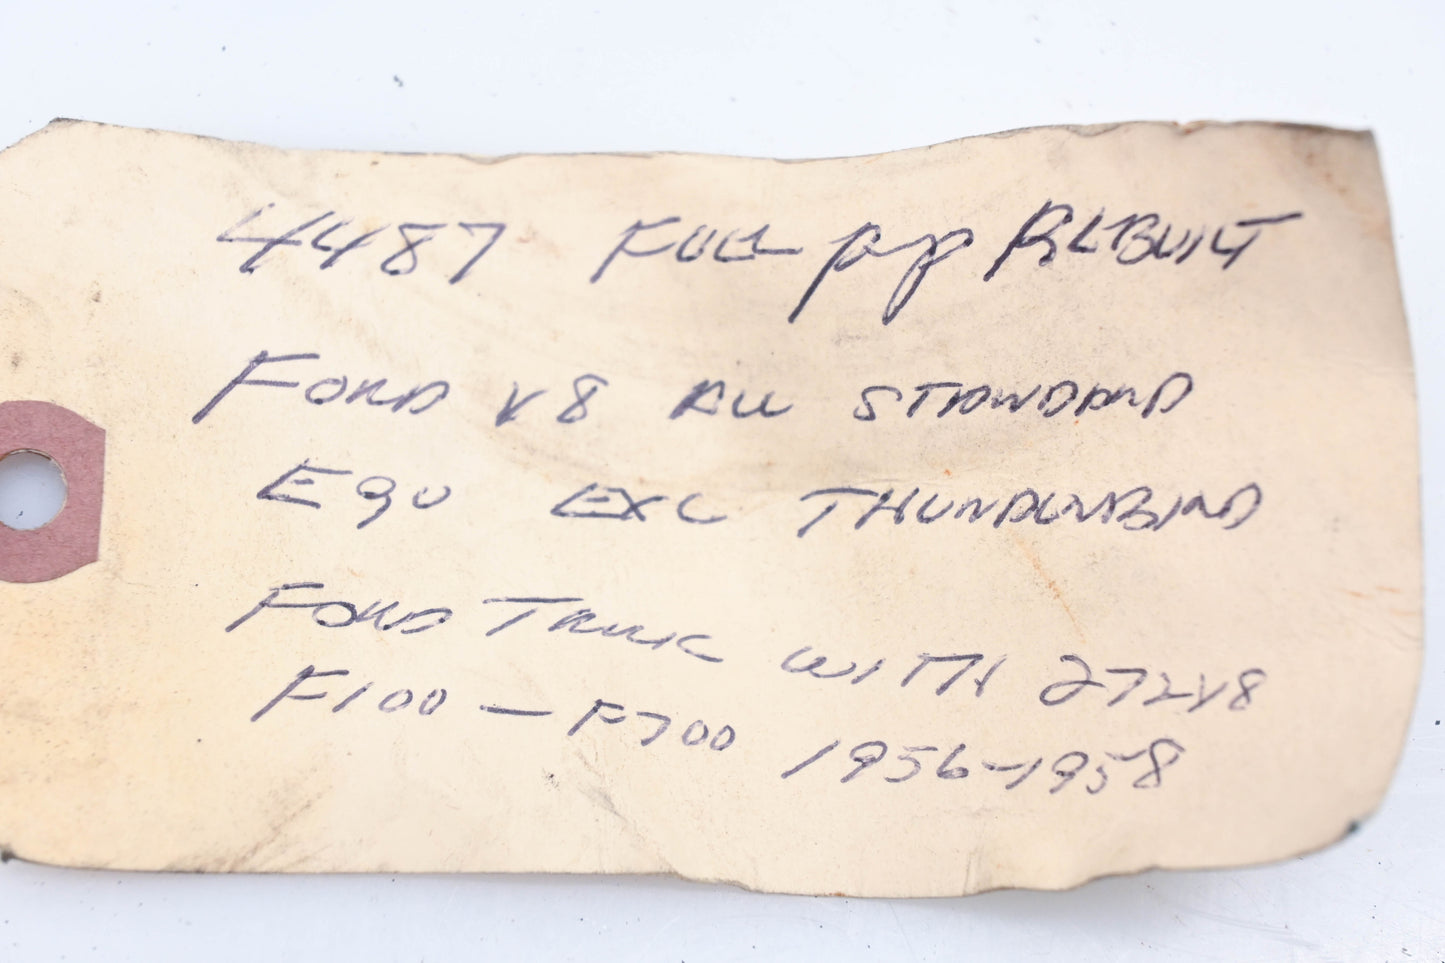 4487 FUEL pmp REBUILT
FORD V8 ALL STANDARD
EQU EXC THUNDERBIRD
FORD TRUCK WITH 272V8
F100 — F700 1956-1958